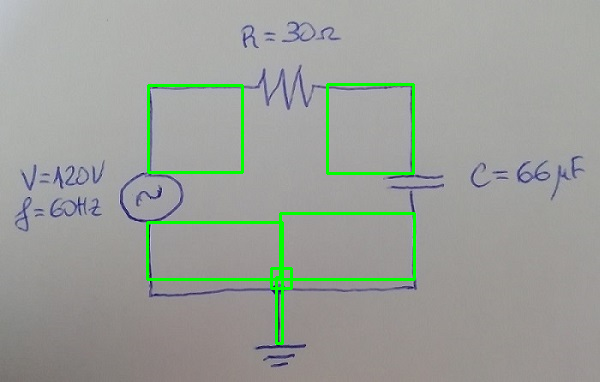 R = 30Ω
V=120V
f=60Hz
C=66μF